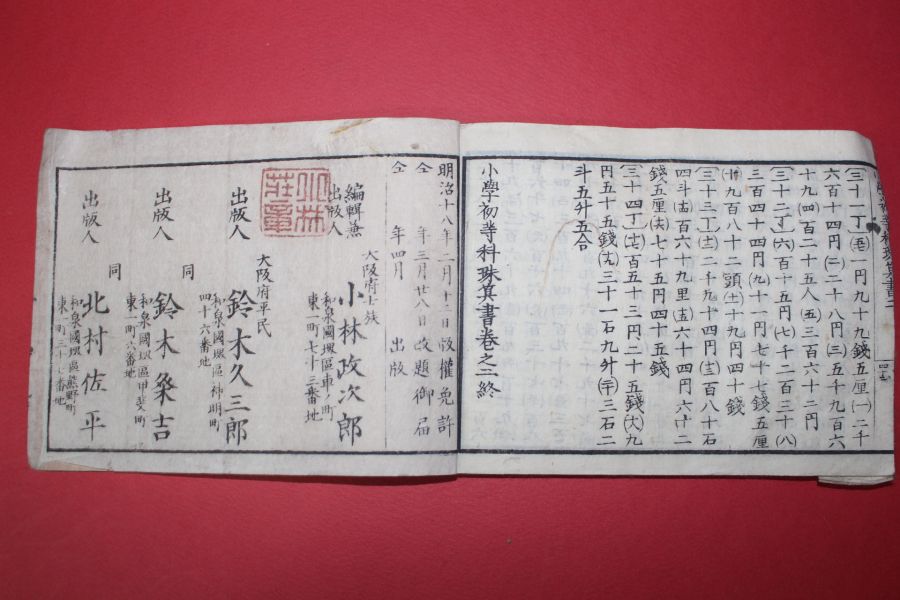 (三十一丁)一円九十九銭五厘(一)二千
六百十四円(二)二十八円(三)五千九百六
十九(四)百二十五人(五)三百六十二円
(三十二丁)(六)百十五円(七)千二百三十(八)
三百四十四円(九)十一円七十七銭五厘
(十)九百八十二頭(十一)十九円四十銭
(三十三丁)(十二)二千九十四円(十三)百八十石
四斗(十四)百六十九里(十五)六十四円六十二
銭五厘(十六)七十五円四十五銭
(三十四丁)(十七)百五十三円二十五銭(十八)九
円五十五銭(十九)三十一石九升(二十)三石二
斗五升五合
小學初等科珠算書卷之二終
明治十八年二月十三日版權免許
仝　年三月廿八日改題御届
仝　年四月　出版
大阪府士族
編輯兼出版人　小林政次郎
和泉國堺區東ノ町
東一町七十三番地
大阪府平民
出版人　鈴木久三郎
和泉國堺區神明町
四十六番地
同
出版人　鈴木粂吉
和泉國堺區甲斐町
東一町六番地
同
出版人　北村佐平
和泉國堺區熊野町
東一町三十七番地
小林
莊章